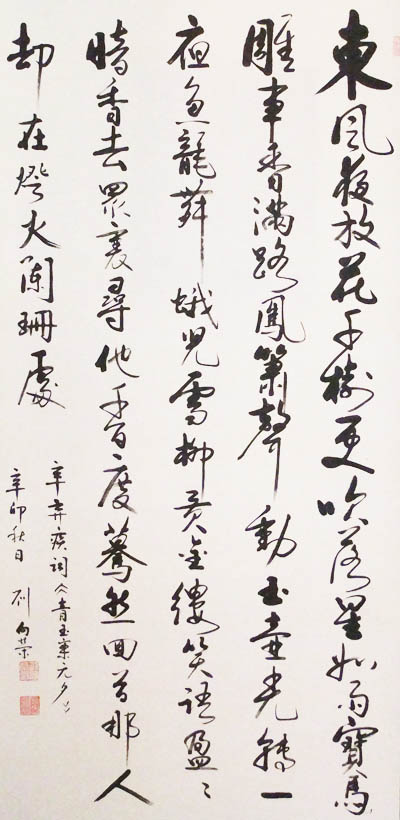 東風夜放花千樹更吹落星如雨寶馬
雕車香滿路鳳簫聲動玉壺光轉一
夜魚龍舞蛾兒雪柳黃金縷笑語盈〻
暗香去眾裏尋他千百度驀然回首那人
却在燈火闌珊處
辛弃疾詞《青玉案元夕》
辛卯秋日 刘向荣